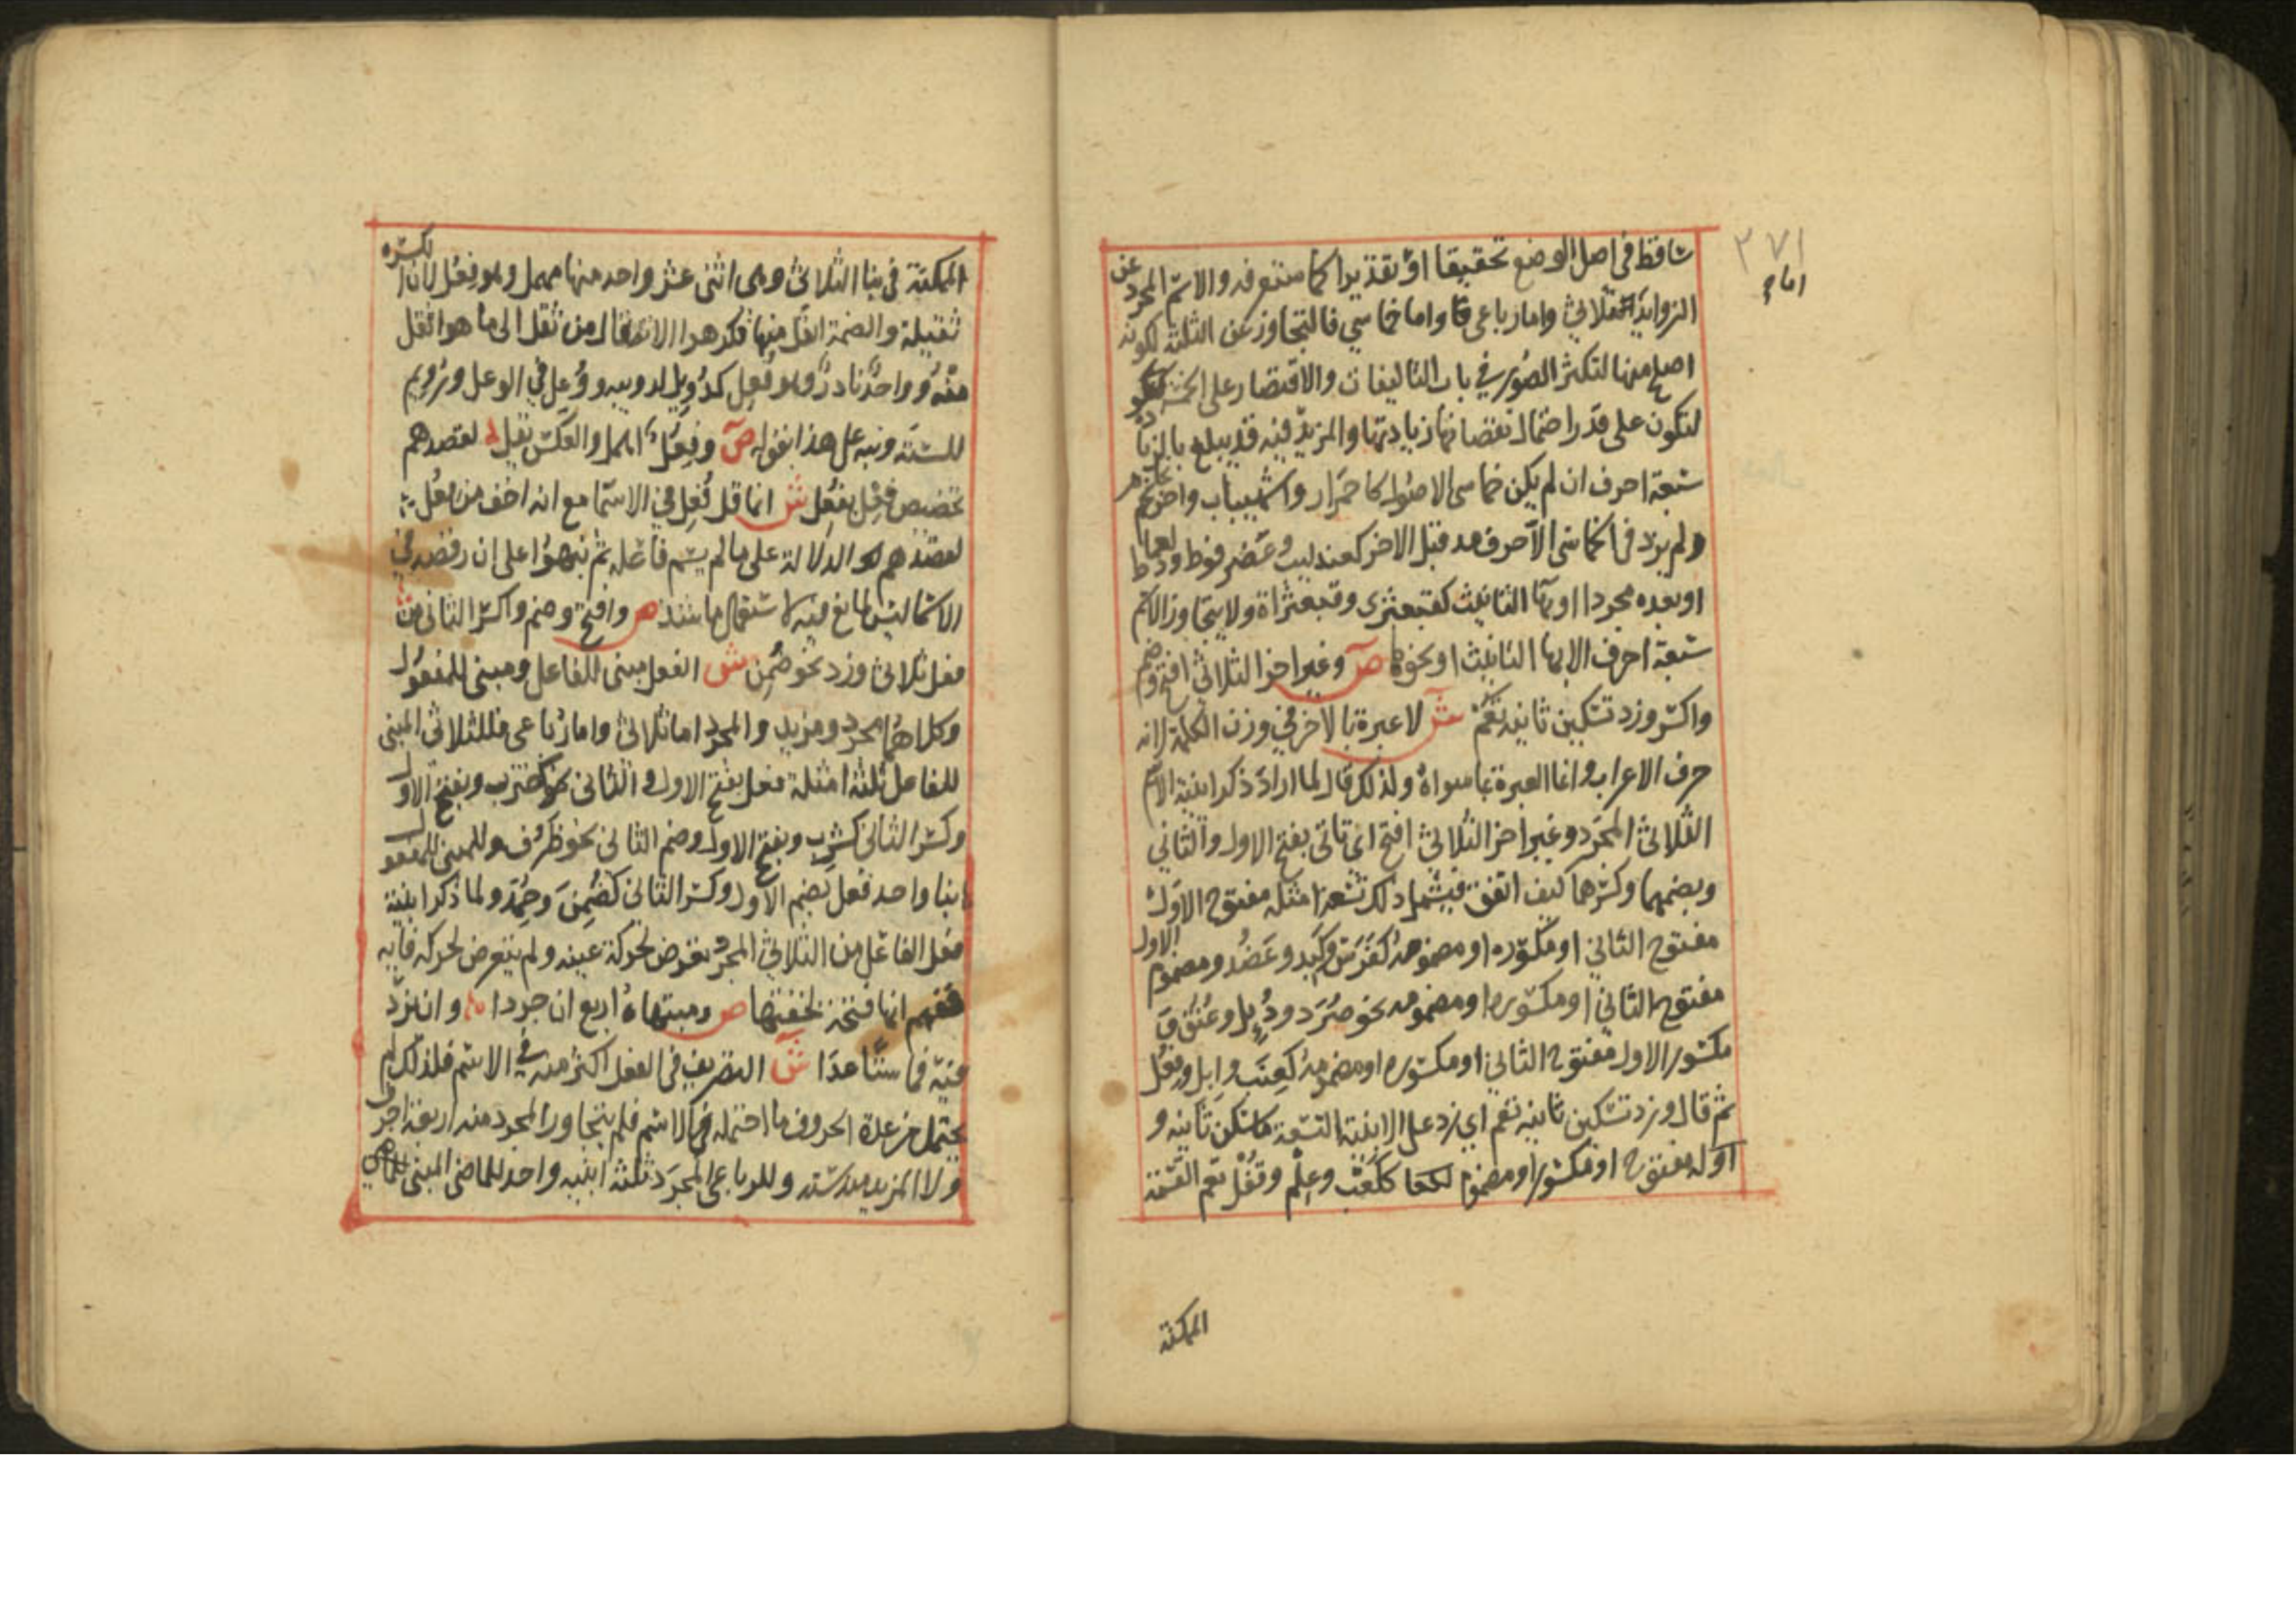 ٢٧١
ساقط في اصل الوضع تحقيقا او تقديرا كما ستعرفه والاسم المجرد عن
اما
الزوايد ثلاثي واما رباعي واما خماسي فالتجاوز عن الثلثة لكونه
اصلح منها لتكثر الصور في باب التاليفات والاقتصار على الخمسة
لتكون على قدر احتمال نقصانها زيادتها والمزيد فيه قد يبلغ بالزيادة
سبعة احرف ان لم يكن خماسي الاصول كاحمرار واشهيباب واحرنجام
ولم يزد في الخماسي الا حرف مد قبل الاخر كعندليب وعضرفوط
او بعده مجردا او بها التانيث كقبعثرى وقبعثراة ولا يتجاوز الاسم
سبعة احرف الا بها التانيث او نحوها ص وغير اخر الثلاثي افتح وضم
واكسر وزد تسكين ثانيه تعم ش لا عبرة بالاخر في وزن الكلمة لانه
حرف الاعراب وانما العبرة بما سواه ولذلك قال لما اراد ذكر ابنية الاسم
الثلاثي المجرد وغير اخر الثلاثي افتح اي تاتي بفتح الاول والثاني
وبضمهما وكسرهما كيف اتفق فيشمل ذلك تسعة امثلة مفتوح الاول
مفتوح الثاني او مكسوره او مضمومه كفرس وكبد وعضد ومضموم الاول
مفتوح الثاني او مكسوره او مضمومه نحو صرد ودئل وعنق و
مكسور الاول مفتوح الثاني او مكسوره او مضمومه كعنب وابل وفعل
ثم قال وزد تسكين ثانيه تعم اي زد على الابنية التسعة ما سكن ثانيه و
اوله مفتوح او مكسور او مضموم ككعب وعلم وقفل تعم القسمة
الممكنة
الممكنة في بنا الثلاثي وهي اثنى عشر واحد منها مهمل وهو فعل لان الكسره
ثقيلة والضمة اثقل منها فكرهوا الانتقال من ثقل الى ما هو اثقل
منه وواحد نادر وهو فعل كدئل لدويبه ووعل في الوعل ورئم
للسته ونبه على هذا بقوله ص وفعل اهمل والعكس يقل لقصدهم
تخصيص فعل بفعل ش انما قل فعل في الاسما مع انه اخف من فعل
لقصدهم الدلالة على ما لم يسم فاعله ثم نبهوا على ان رفضه في
الاسما ليس لمانع فيه لاستعمال ما شذ ص وافتح وضم واكسر الثاني من
فعل ثلاثي وزد نحو ضمن ش الفعل مبني للفاعل ومبني للمفعول
وكلاهما مجرد ومزيد والمجرد اما ثلاثي واما رباعي فللثلاثي المبني
للفاعل ثلثة امثلة فعل بفتح الاول والثاني كضرب وبفتح الاول
وكسر الثاني كشرب وبفتح الاول وضم الثاني نحو ظرف وللمبني للمفعول
بنا واحد فعل بضم الاول وكسر الثاني كضمن وحمد ولما ذكر ابنية
فعل الفاعل من الثلاثي المجرد تعرض لحركة عينه ولم يتعرض لحركه فايه
ففهم انها فتحة لخفتها ص ومنتهاه اربع ان جردا وان يزد
فيه فما ستا عدا ش التصريف في الفعل اكثر منه في الاسم فلذلك لم
يحتمل من عدة الحروف ما احتمله الاسم فلم يتجاوز المجرد منه اربعة احرف
ولا المزيد منه سته وللرباعي المجرد ثلثة ابنيه واحد للماضي المبني للفاعل